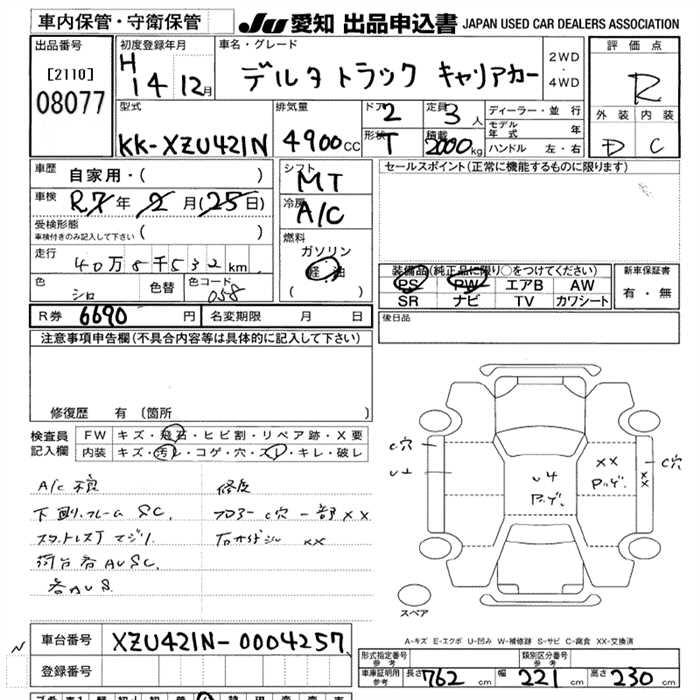 車内保管・守衛保管
JU愛知 出品申込書 JAPAN USED CAR DEALERS ASSOCIATION
出品番号
[2110]
08077
初度登録年月
H 14 12月
車名・グレード
デルタトラック キャリアカー
2WD
・
4WD
評価点
R
外装 内装
D C
型式
KK-XZU421N
排気量
4900cc
ドア 2
形状 T
定員 3人
積載 2000kg
ディーラー・並行
モデル年式 年
ハンドル 左・右
車歴 自家用・( )
車検 R7年2月(25日)
受検形態
車検付きのみ記入して下さい ( )
走行 40万8千532km
色 シロ 色替 色コード 058
シフト MT
冷房 A/C
燃料
ガソリン
軽油
( )
セールスポイント(正常に機能するものに限ります)
装備品(純正品に限り○をつけてください)
PS PW エアB AW
SR ナビ TV カワシート
新車保証書
有・無
後日品
R券 6690円 名変期限 月 日
注意事項申告欄(不具合内容等は具体的に記入して下さい)
修復歴 有(箇所 )
検査員記入欄
FW キズ・飛石・ヒビ割・リペア跡・X要
内装 キズ・汚れ・コゲ・穴・スレ・キレ・破レ
A/C不良
修復
下廻りフレームSC.
フロアーC穴一部XX
C穴
U
U4
XX
C穴
XX
スペア
A-キズ E-エクボ U-凹み W-補修跡 S-サビ C-腐食 XX-交換済
車台番号 XZU421N-0004257
登録番号
型式指定番号
参考
類別区分番号
参考
車庫証明用
参考
長さ 762 cm 幅 221 cm 高さ 230 cm